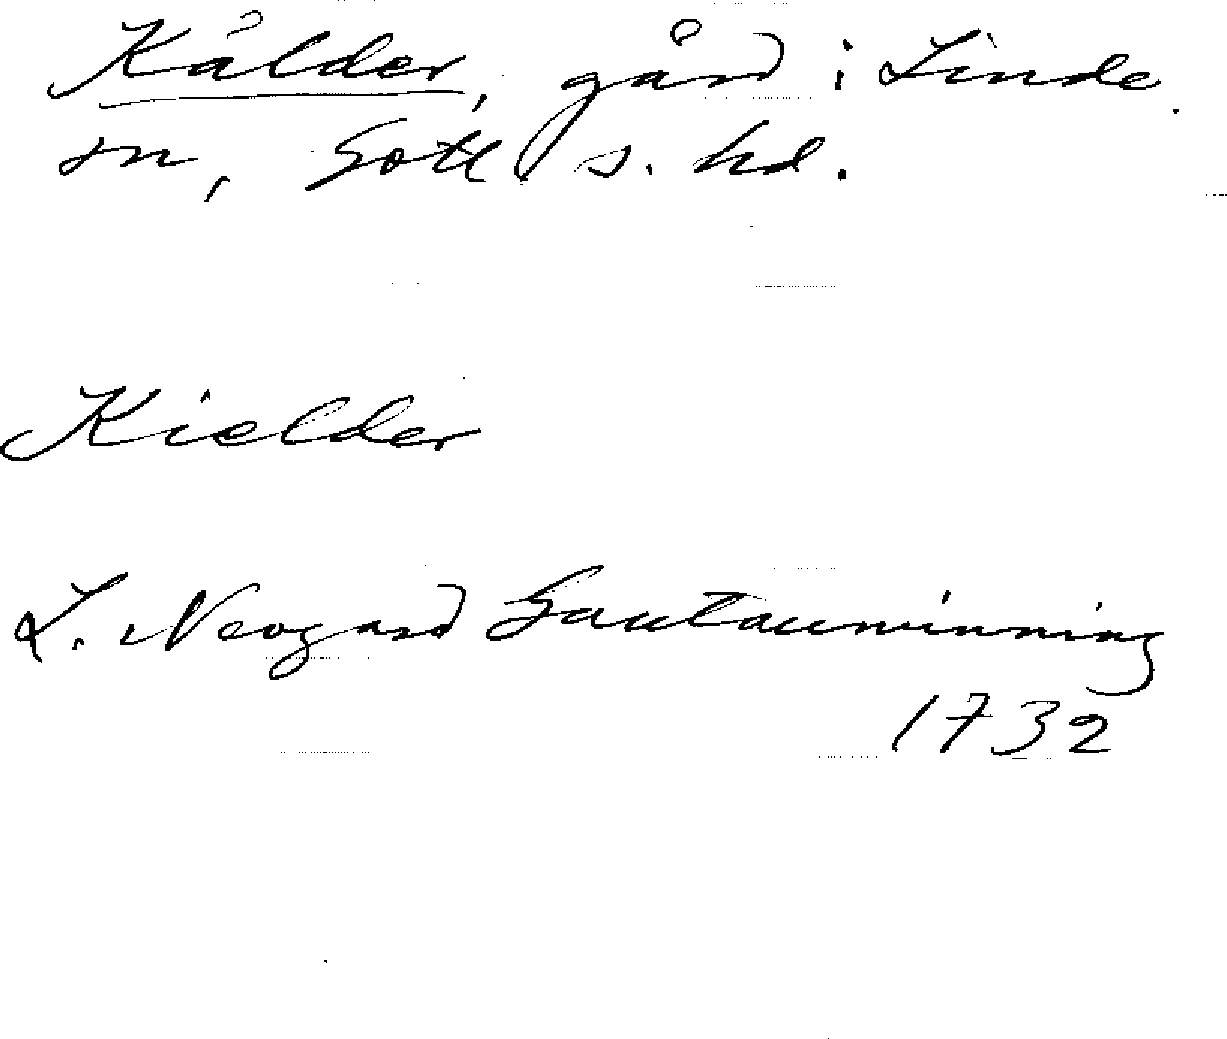 Kålder, gård i Linde
sn, Gotl. s. hd.
Kielder
L. Neogard Gautauminning
1732